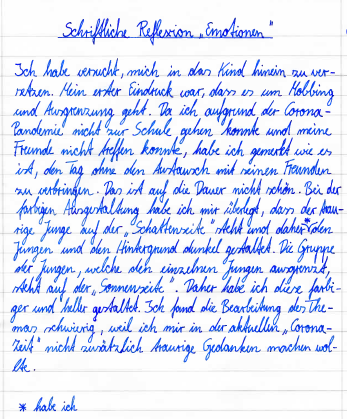 Schriftliche Reflexion „Emotionen"
Ich habe versucht, mich in das Kind hinein zu ver-
setzen. Mein erster Eindruck war, dass es um Mobbing
und Ausgrenzung geht. Da ich aufgrund der Corona-
Pandemie nicht zur Schule gehen konnte und meine
Freunde nicht treffen konnte, habe ich gemerkt wie es
ist, den Tag ohne den Austausch mit seinen Freunden
zu verbringen. Das ist auf die Dauer nicht schön. Bei der
farbigen Ausgestaltung habe ich mir überlegt, dass der trau-
rige Junge auf der „Schattenseite" steht und daher*den
Jungen und den Hintergrund dunkel gestaltet. Die Gruppe
der Jungen, welche den einzelnen Jungen ausgrenzt,
steht auf der „Sonnenseite". Daher habe ich diese farbi-
ger und heller gestaltet. Ich fand die Bearbeitung des The-
mas schwierig, weil ich mir in der aktuellen „Corona-
Zeit" nicht zusätzlich traurige Gedanken machen wol-
lte.
* habe ich